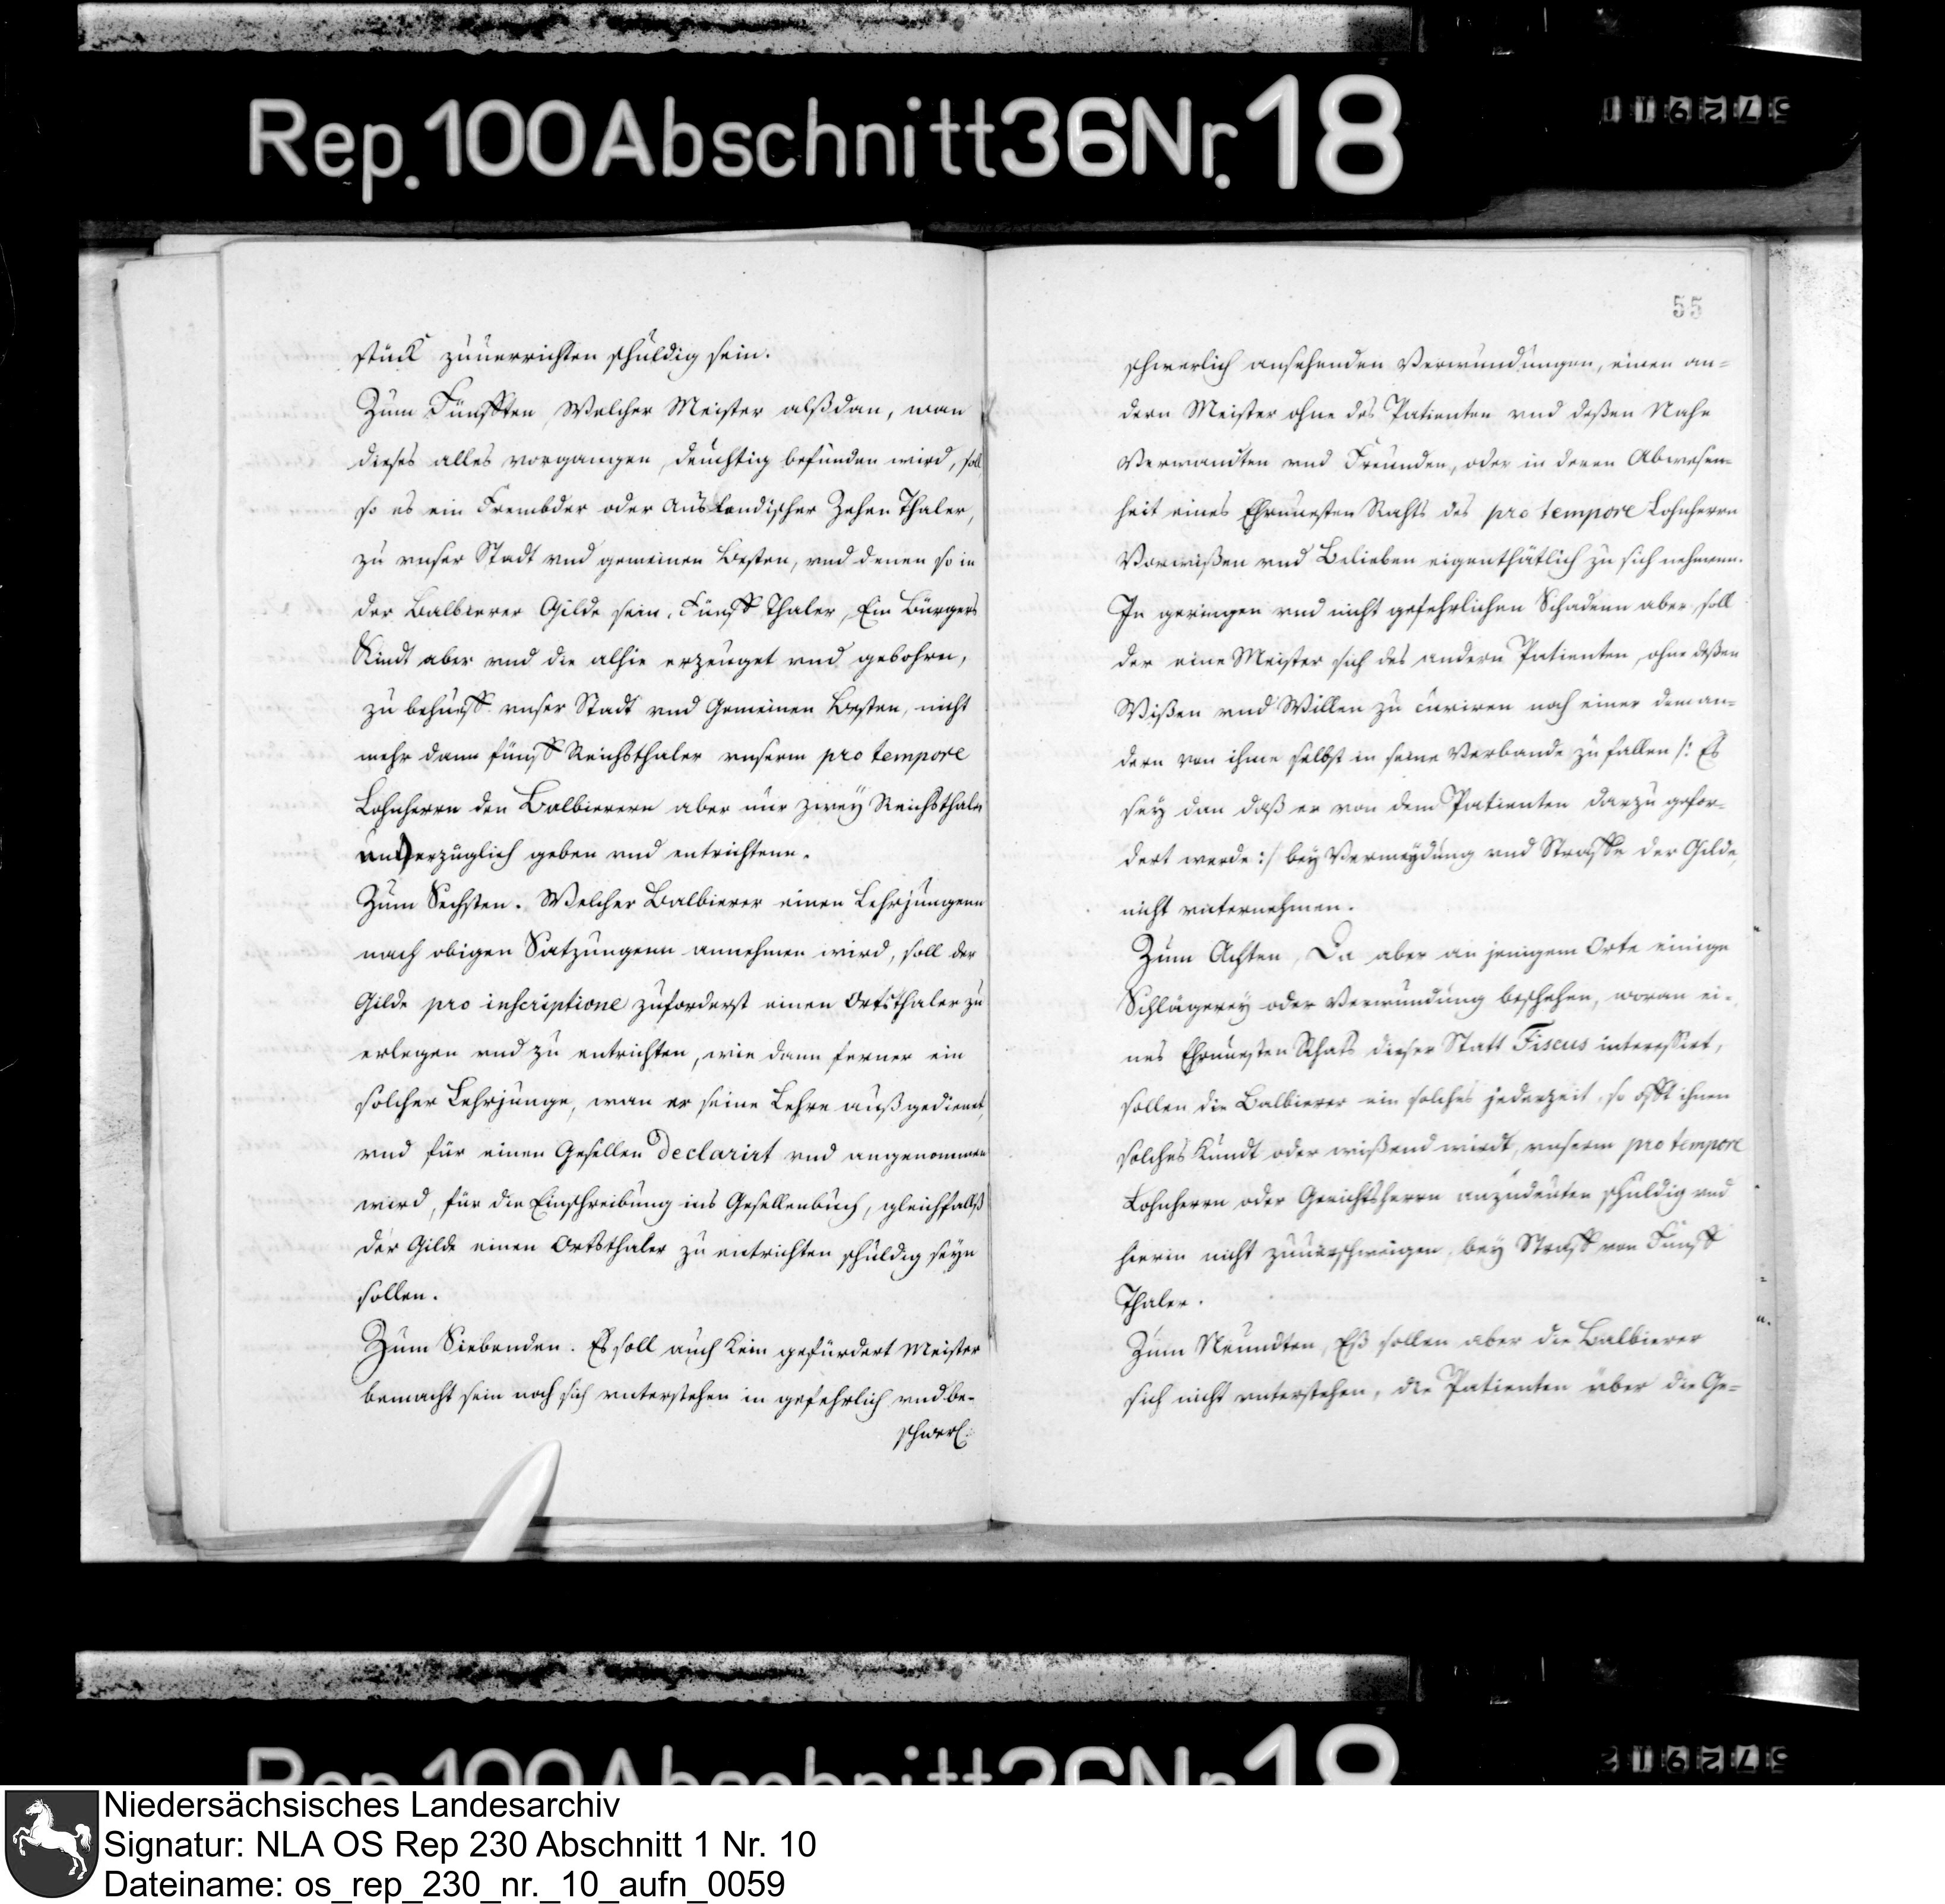 Rep. 100 Abschnitt 36 Nr. 18
stück zuuerrichten schuldig sein.
Zum Fünfften Welcher Meister alßdan, wan
dieses alles vorgangen, deuchtig befunden wird, soll
so es ein Frembder oder Auslendischer Zehen Thaler,
zu vnser Stadt vnd gemeinen Besten, vnd denen so in
der Balbierer Gilde sein, Fünff Thaler, Ein Bürgers
Kindt aber vnd die alhie erzeuget vnd gebohren,
zu behueff vnser Stadt vnd Gemeinen Besten, nicht
mehr dann fünff Reichsthaler vnserm pro tempore
Lohnherrn den Balbierern aber nur zwey Reichsthaler
unverzüglich geben vnd entrichtenn.
Zum Sechsten. Welcher Balbierer einen Lehrjungenn
nach obigen Satzungenn annehmen wird, soll der
Gilde pro inscriptione zuforderst einen Ortsthaler zu
erlegen vnd zu entrichten, wie dann ferner ein
solcher Lehrjunge, wan er seine Lehre außgedienet,
vnd für einen Gesellen declarirt vnd angenommen
wird, für die Einschreibung ins Gesellenbuch, gleichfallß
der Gilde einen Ortsthaler zu entrichten schuldig seyn
sollen.
Zum Siebenden. Es soll auch kein gefürdert Meister
bemacht sein noch sich vnterstehen in gefehrlich vnd be-
schwerl.
55
schwerlich ansehenden Verwundungen, einen an-
dern Meister ohne des Patienten vnd deßen Nahe
Verwandten vnd Freunden, oder in deren Abwesen-
heit eines Ehrnuesten Rahts des pro tempore Lohnherrn
Vorwißen vnd Belieben eigenthätlich zu sich nehmenn.
In geringen vnd nicht gefehrlichen Schadenn aber, soll
der eine Meister sich des andern Patienten, ohne deßen
Wißen vnd Willen zu curiren noch einer dem an-
dern von ihme selbst in seine Verbande zu fallen /: Es
sey dan daß er von dem Patienten darzu gefor-
dert werde :/ bey Vermeydung vnd Straffe der Gilde
nicht vnternehmen.
Zum Achten, Da aber an jenigem Orte einige
Schlägerey oder Verwundung beschehen, woran ei-
nes Ehrnuesten Rhats dieser Statt Fiscus interessirt,
sollen die Balbierer ein solches jederzeit, so offt ihnen
solches Kundt oder wißend wirdt, vnserm pro tempore
Lohnherrn oder Gerichtsherrn anzudeuten schuldig vnd
hierin nicht zuuerschweigen, bey Straff von Fünff
Thaler.
Zum Neundten, Eß sollen aber die Balbierer
sich nicht vnterstehen, die Patienten über die Ge-
Niedersächsisches Landesarchiv
Signatur: NLA OS Rep 230 Abschnitt 1 Nr. 10
Dateiname: os_rep_230_nr._10_aufn_0059